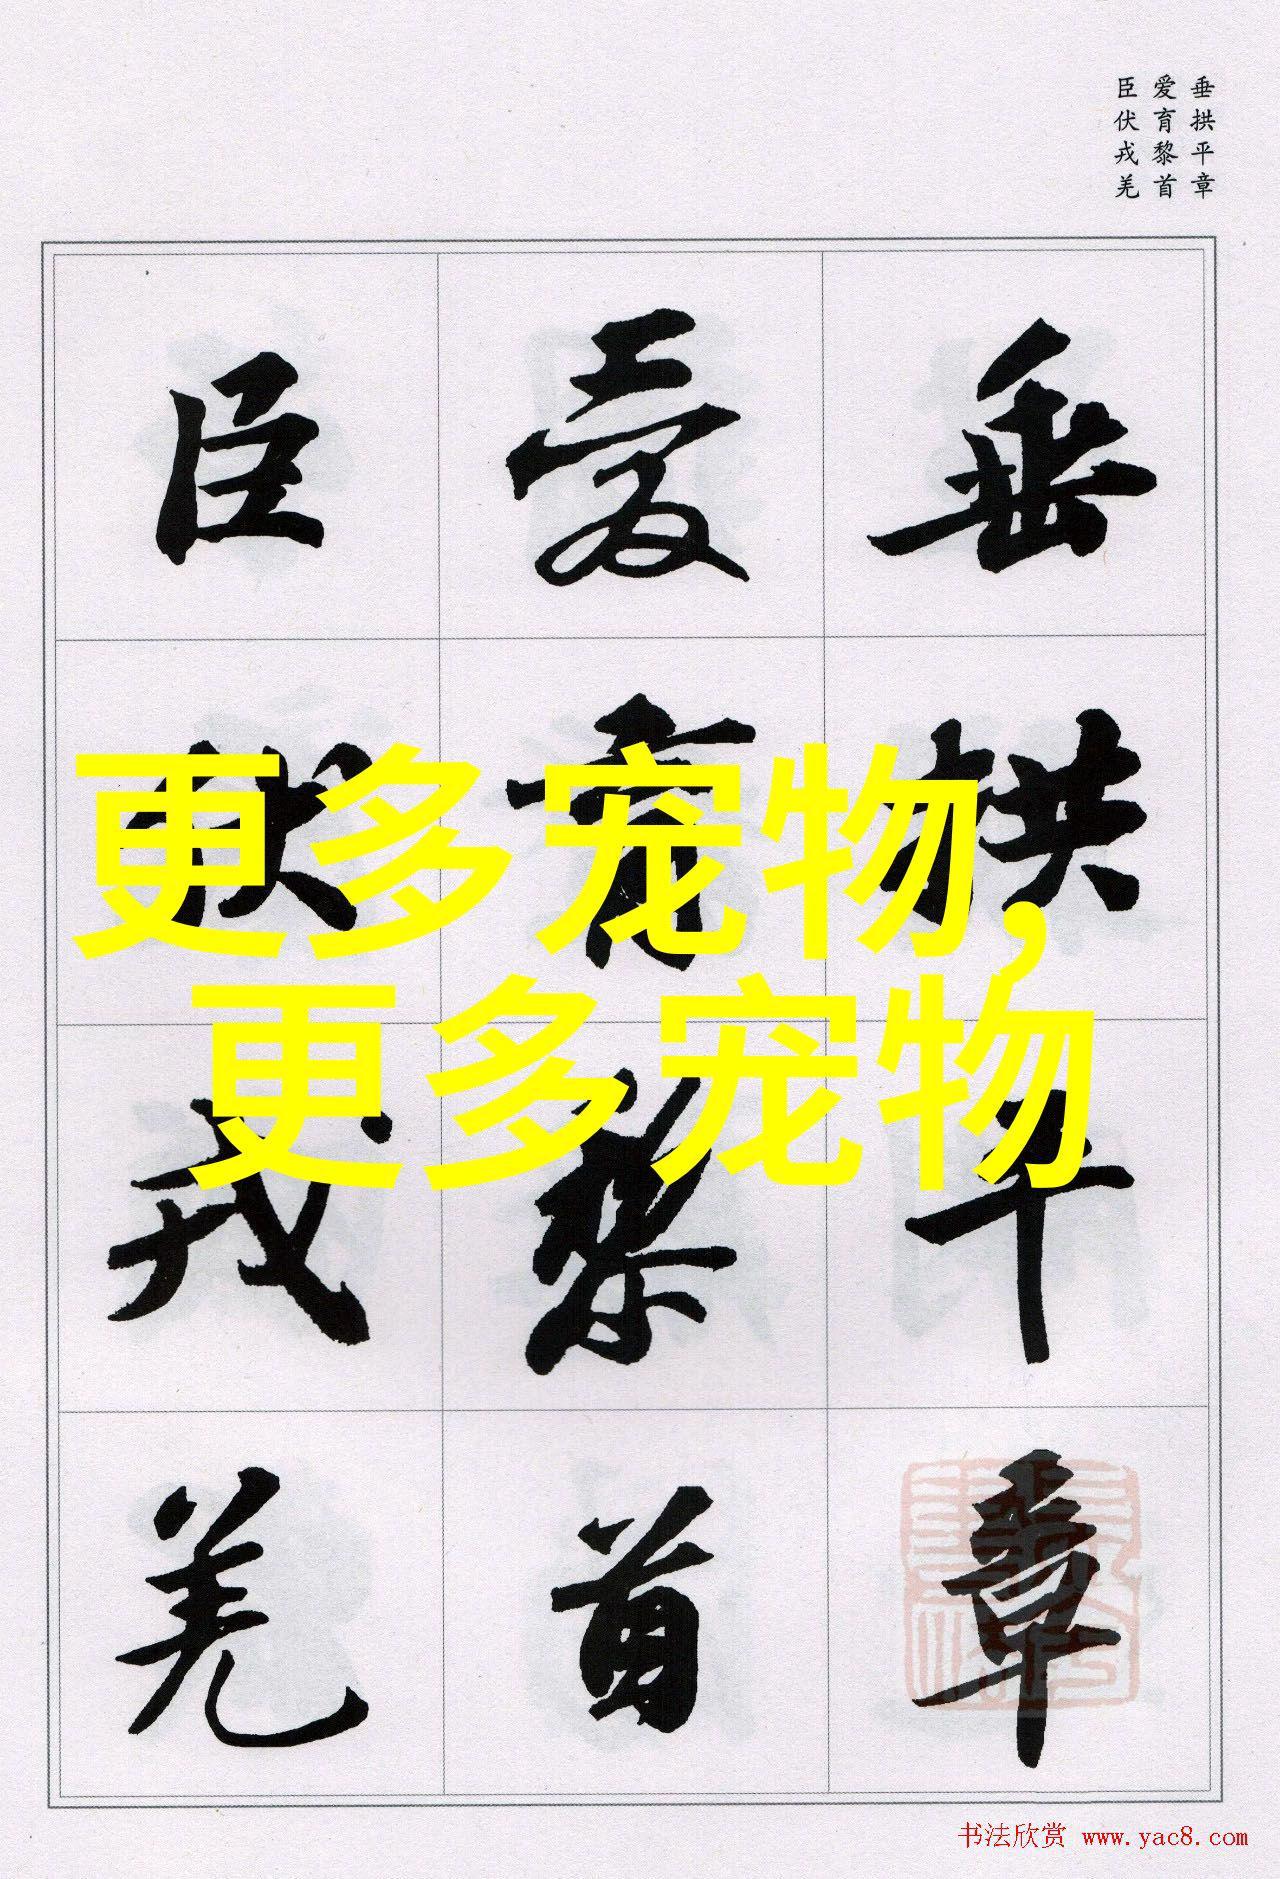 垂拱平章
爱育黎首
臣伏戎羌
垂拱平章
爱育黎首
臣伏戎羌
更多宠物,
更多宠物
书法欣赏 www.yac8.com